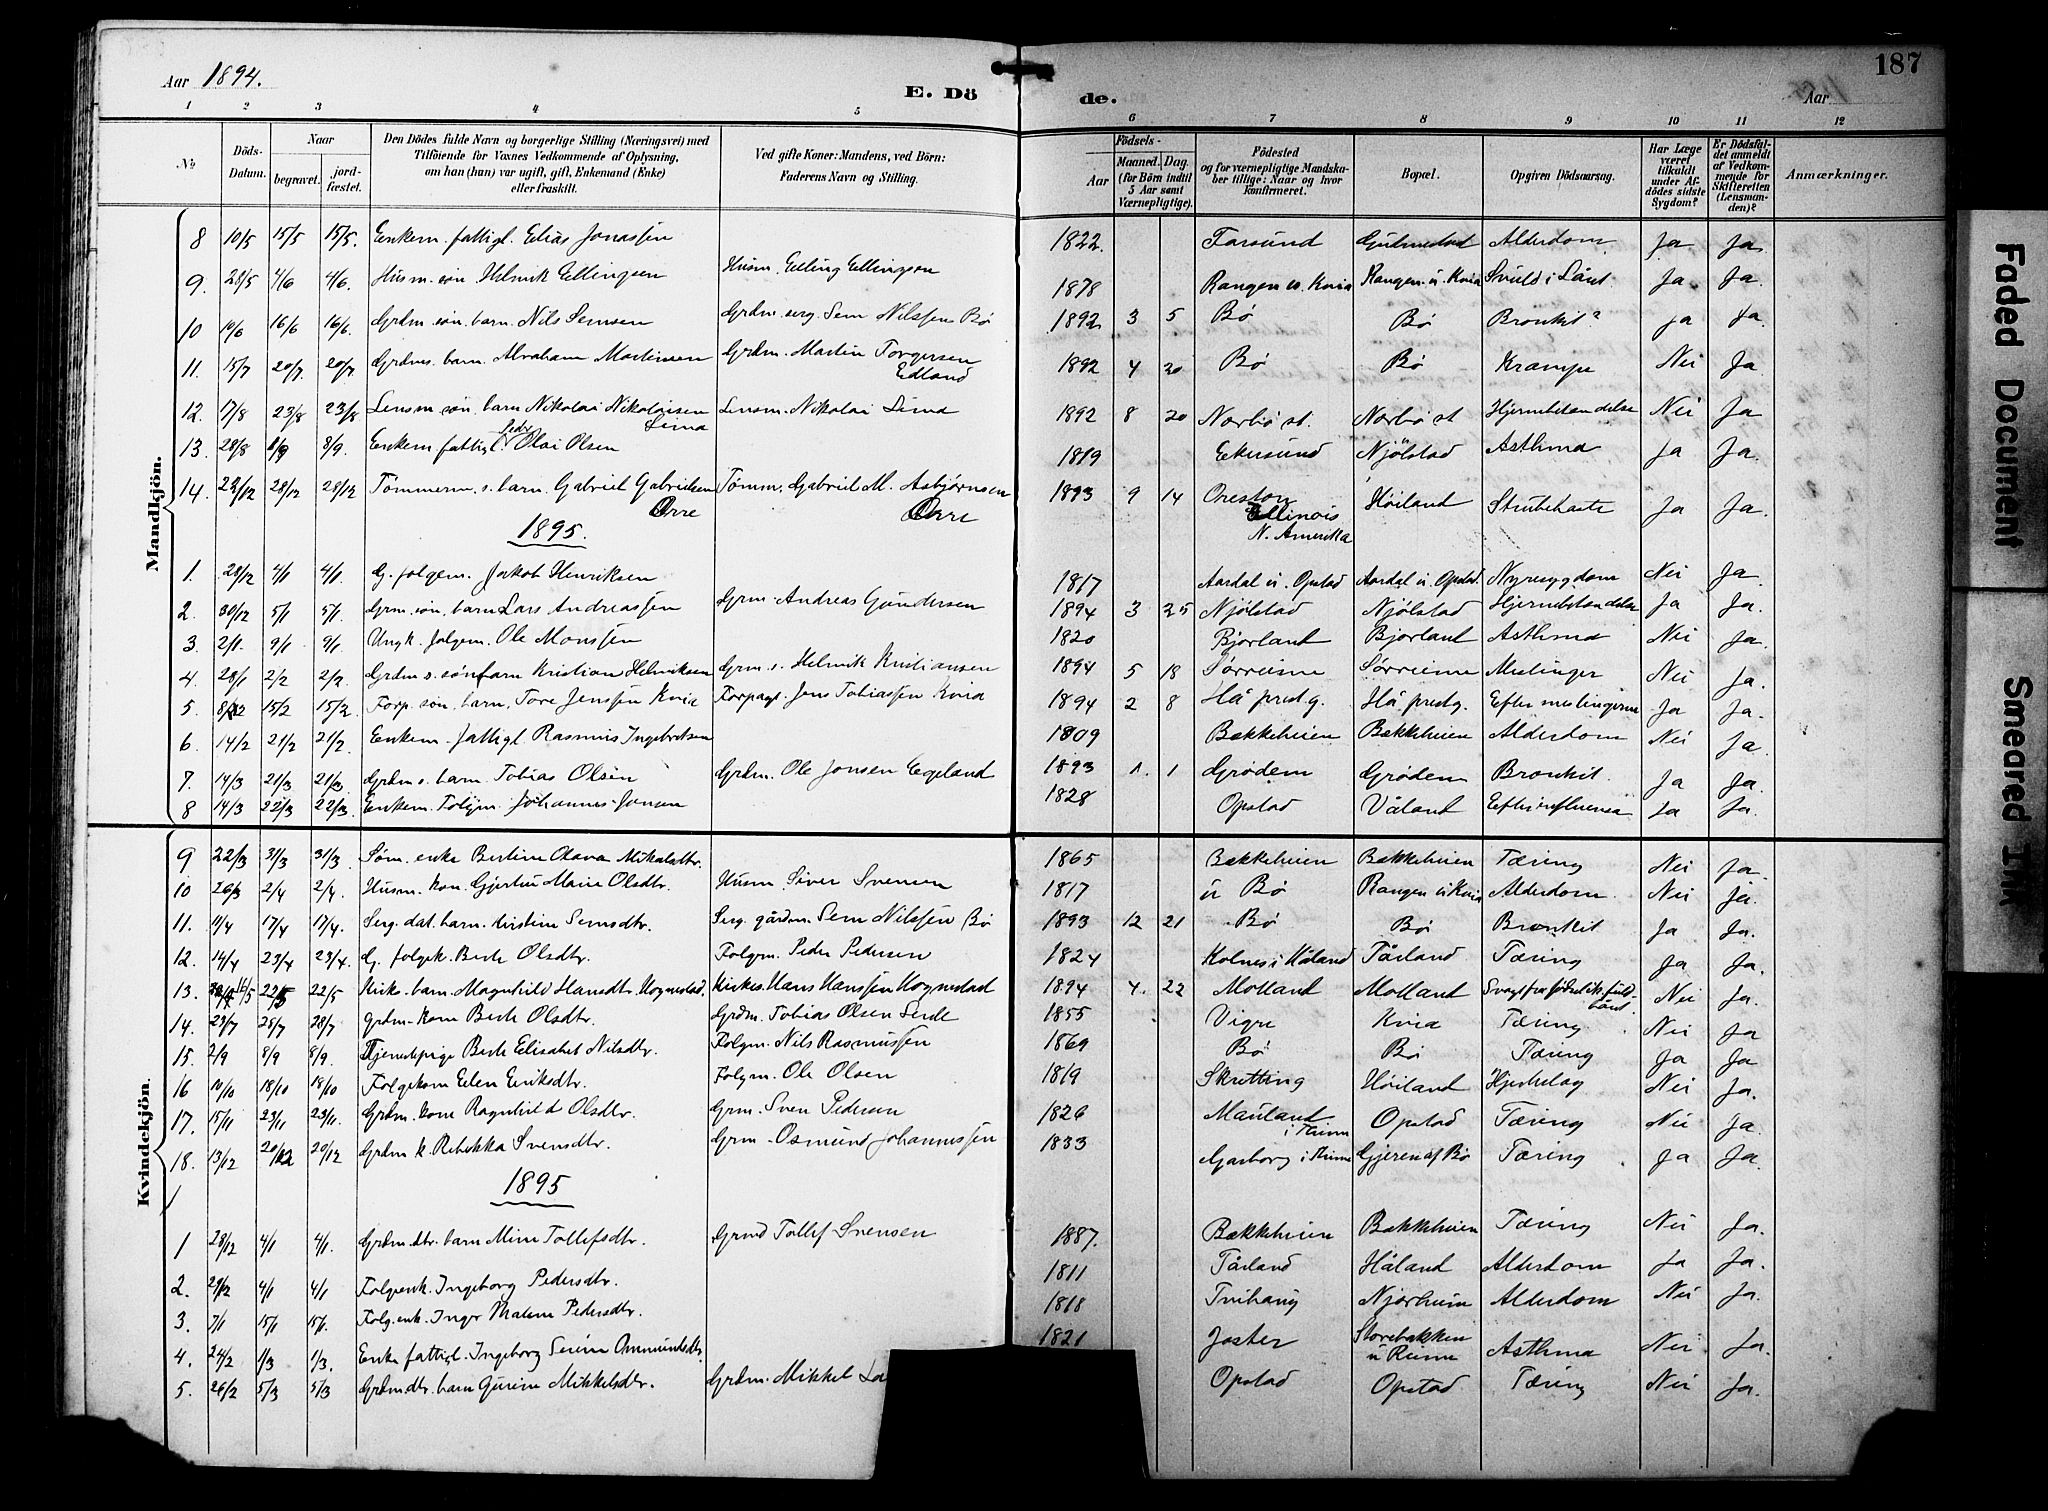 Aar 1894.
E. Dö
de.
Aar
187
1 2 3 4 5 6 7 8 9 10 11 12
No
Döds-Datum.
Naar
begravet.
jordfæstet.
Den Dödes fulde Navn og borgerlige Stilling (Næringsvei) med
Tilföiende for Voxnes Vedkommende af Oplysning,
om han (hun) var ugift, gift, Enkemand (Enke)
eller fraskilt.
Ved gifte Koner: Mandens, ved Börn:
Faderens Navn og Stilling.
Födsels-
Aar
Maaned. Dag.
(for Börn indtil
5 Aar samt
Værnepligtige).
Födested
og for værnepligtige Mandskaber tillige: Naar og hvor
konfirmeret.
Bopæl.
Opgiven Dödsaarsag.
Har Læge
været
tilkaldt
under Afdödes sidste
Sygdom?
Er Dödsfaldet anmeldt
af Vedkommende for
Skifteretten
(Lensmanden)?
Anmærkninger.
Mandkjön.
8 10/5 15/5 15/5. Enkem. fattigl. Elias Jonassen 1822. Farsund Gudmestad Alderdom. Ja Ja
9. 28/5 4/6 4/6. Husm. søn. Helmik Ellingsen Husm. Elling Ellingsen 1878 Rangen u. Kvia Rangen. u. Kvia Ja Ja.
10 10/6 16/6 16/6. Grdm. søn. barn. Nils Semsen Grdm. serg. Sem Nilssen Bø 1892 3 5 Bø Bø Bronkit? Ja Ja.
11. 15/7 20/7 20/7 Grdms. barn. Abraham Martinsen Grdm. Martin Torgersen Edland 1892 4 20 Bø Bø Krampe Nei Ja
12. 17/8 23/8 23/8 Lensm. søn. barn Nikolai Nikolaisen Lima Lensm. Nikolai Lima 1892 8 20 Nærbø st. Nærbø st Hjernebetændelse Nei Ja
13. 28/8 8/9 8/9. Enkem. fattigl. Peder Olai Olsen 1819 Ekersund Njölstad Asthma Ja Ja.
14. 22/12 28/12 28/12 Tömmerm. s. barn. Gabriel Gabrielsen Orre Tømm. Gabriel M. Asbjørnsen Orre 1893 9 14 Oreston Ellinois N. Amerika Höiland Strubehoste Ja Ja.
1895.
1. 28/12 4/1 4/1. G. folgem. Jakob Henriksen 1817 Aardal u. Opstad Aardal u. Opstad. Nyresygdom Nei Ja
2. 30/12 5/1 5/1. Grm. søn. barn Lars Andreassen Grm. Andreas Gundersen 1894 3 25 Njölstad Njölstad Hjernebetændelse Ja Ja.
3. 2/1 9/1 9/1 Ungk. folgem. Ole Monssen 1820 Bjorland Bjorland Asthma Nei Ja
4. 28/1 2/2 2/2 Grdm s. søn barn Kristian Helmiksen Grm. s. Helmik Kristiansen 1894 5 18 Sørreime Sørreime Meslinger Nei Ja.
5. 8/2 15/2 15/2 Forp. søn. barn. Tore Jenssen Kvia Forpagt. Jens Tobiassen Kvia 1894 2 8 Hå prestg. Hå prestg. Efter meslingerne Ja Ja.
6. 14/2 21/2 21/2 Enkem. fattigl. Rasmus Ingebretsen 1809 Bækkeheien Bækkeheien Alderdom Nei Ja
7. 14/3 21/3 21/3. Grdm s. barn. Tobias Olsen Grdm. Ole Jonsen Egeland 1893 1. 1 Grødem Grødem Bronkit. Ja Ja.
8 14/3 22/3 22/3. Enkem. Folgm. Johannes Jonsen 1828 Opstad Våland Efter influensa Ja Ja.
Kvindekjön.
9 22/3 31/3 31/3 Søm. enke Bertine Olava Mikalsdtr. 1865 Bækkeheien Bækkeheien Tæring Nei Ja.
10 26/3 2/4 2/4. Husm. kon. Gjertru Marie Olsdtr. Husm Siver Svensen 1817 u Bø Rangen u Kvia Alderdom. Nei Ja.
11. 11/4 17/4 17/4. Serg. dat. barn. Kirstine Semsdtr. Serg. gårdm. Sem Nilssen Bø 1893 12 21 Bø Bø Bronkit Ja Ja.
12. 14/4 23/4 23/4 G. folgek. Berte Olsdtr. Folgm. Peder Pedersen 1824 Kolnes i Håland Tårland Tæring Ja Ja.
13. 16/5 22/5 22/5 Kirks. barn. Magnhild Hansdtr. Hognestad. Kirkes. Hans Hanssen Hognestad 1894 4. 22 Motland Motland Nei Ja.
14. 23/7 28/7 28/7 grdm. kone Berte Olsdtr. Grdm. Tobias Olsen Serde 1855 Vigre Kvia Tæring Nei Ja
15. 2/9 8/9 8/9. Tjenestepige Berte Elisabet Nilsdtr. Folgm. Nils Rasmussen 1869 Bø Bø Tæring Ja Ja
16 10/10 18/10 18/10 Folgekone Elen Eriksdtr. Folgm. Ole Olsen 1819 Skretting Höiland Hjerteslag Nei Ja.
17. 15/11 23/11 23/11. Grdm. kone Ragnhild Olsdtr. Grm. Sven Pedersen 1826 Mauland i Time Opstad Tæring Nei Ja.
18. 13/12 20/12 20/12 Grdm k. Rebekka Svensdtr. Grm. Osmund Johannessen 1833 Garborg i Time Gjeren af Bø Tæring Ja Ja.
1895
1 28/12 4/1 4/1. Grdm. dtr. barn Mine Tollefsdtr. Grmd Tollef Svensen 1887. Bækkeheien Bækkeheien Tæring Nei Ja.
2. 29/12 4/1 4/1 Folgenk. Ingeborg Pedersdtr. 1811 Tårland Håland Alderdom Ja Ja.
3. 7/1 15/1 15/1. Folg. enk. Inger Malene Pedersdtr. 1818 Tvihaug Njærheim Alderdom Nei Ja.
4. 24/2 1/3 1/3. Enke fattigl. Ingeborg Serine Ommundsdtr. 1821 Joster Storebakken u Reime Asthma Nei Ja.
5. 26/2 5/3 5/3 Grdm dtr. barn Gurine Mikkelsdtr. Grdm. Mikkel Opstad Opstad Tæring Nei Ja.
Faded Document
Smeared Ink